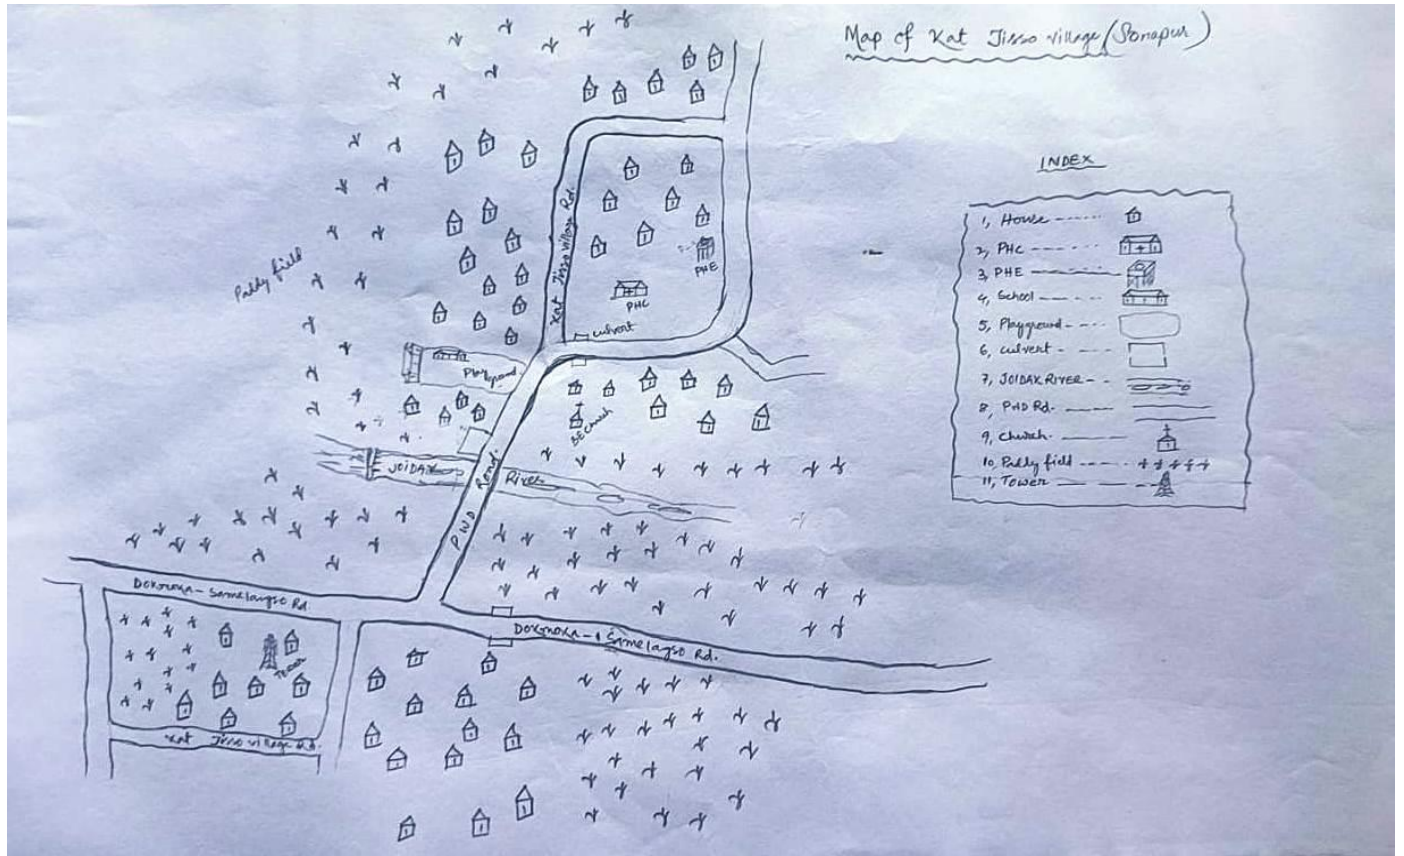 Map of Kat Jisso village (Sonapur)
INDEX
1, House
2, PHC
3, PHE
4, School
5, Playground
6, culvert
7, JOIDAK RIVER
8, PWD Rd.
9, church.
10, Paddy field
11, Tower
Paddy field
Kat Jisso village Rd.
PHE
PHC
culvert
Playground
BE Church
JOIDAK
River
PWD Road
Dokmoka - Samelangso Rd
Dokmoka - Samelangso Rd.
Tower
Kat Jisso village Rd.